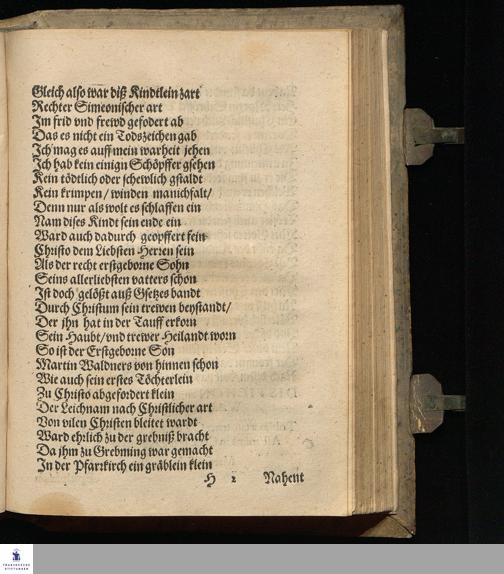 Gleich also war diß Kindtlein zart
Rechter Simeonischer art
Im frid vnd frewd gefodert ab
Das es nicht ein Todszeichen gab
Ich mag es auff mein warheit jehen
Ich hab kein einign Schöpffer gsehen
Kein tödtlich oder schewlich gstaldt
Kein krimpen/ winden manichfalt/
Denn nur als wolt es schlaffen ein
Nam dises Kindt sein ende ein
Ward auch dadurch geopffert fein
Christo dem Liebsten Herren sein
Als der recht erstgeborne Sohn
Seins allerliebsten vatters schon
Ist doch gelößt auß Gsetzes bandt
Durch Christum sein trewen beystandt/
Der jhn hat in der Tauff erkorn
Sein Haubt/ vnd trewer Heilandt worn
So ist der Erstgeborne Son
Martin Waldners von hinnen schon
Wie auch sein erstes Töchterlein
Zu Christo abgefordert klein
Der Leichnam nach Christlicher art
Von vilen Christen bleitet wardt
Ward ehrlich zu der grebniß bracht
Da jhm zu Grebming war gemacht
In der Pfarrkirch ein gräblein klein
H 2 Nahent
FRANCKESCHE
STIFTUNGEN